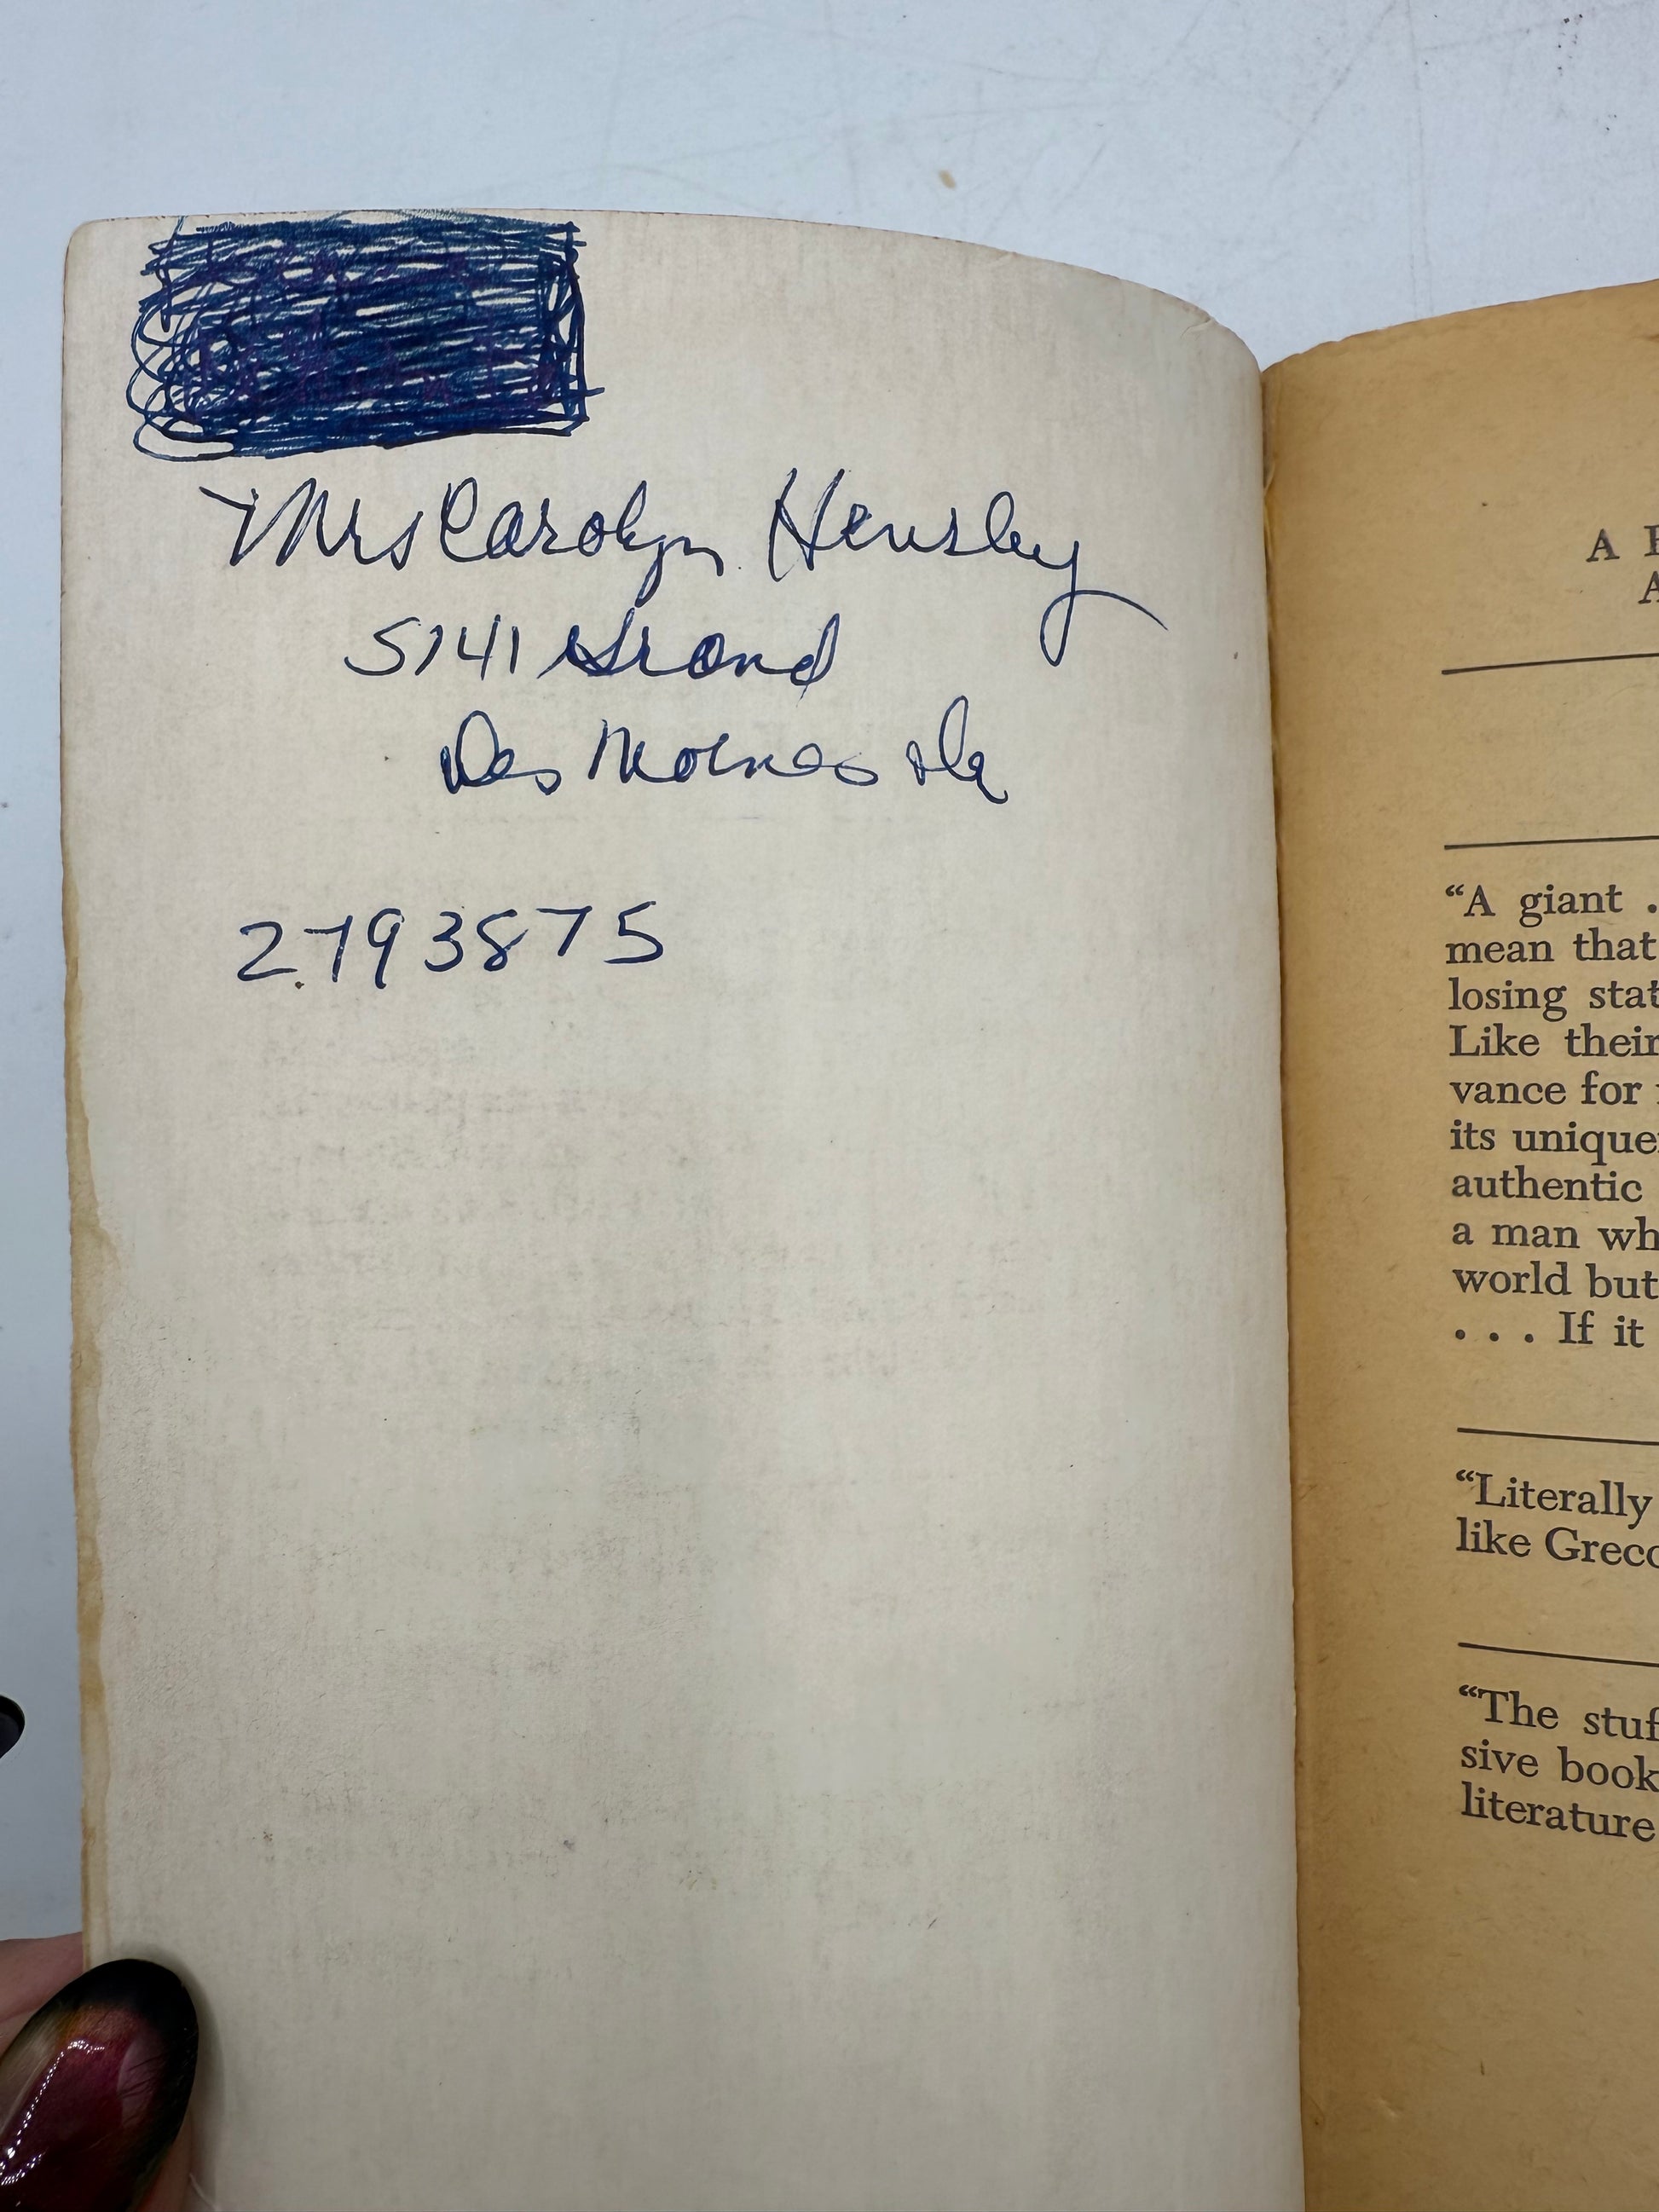 Mrs Carolyn Hensley
5141 Grand
Des Moines Ia
2793875
A
A
"A giant .
mean that
losing stat
Like their
vance for
its unique
authentic
a man wh
world but
. . . If it
"Literally
like Greco
"The stuf
sive book
literature